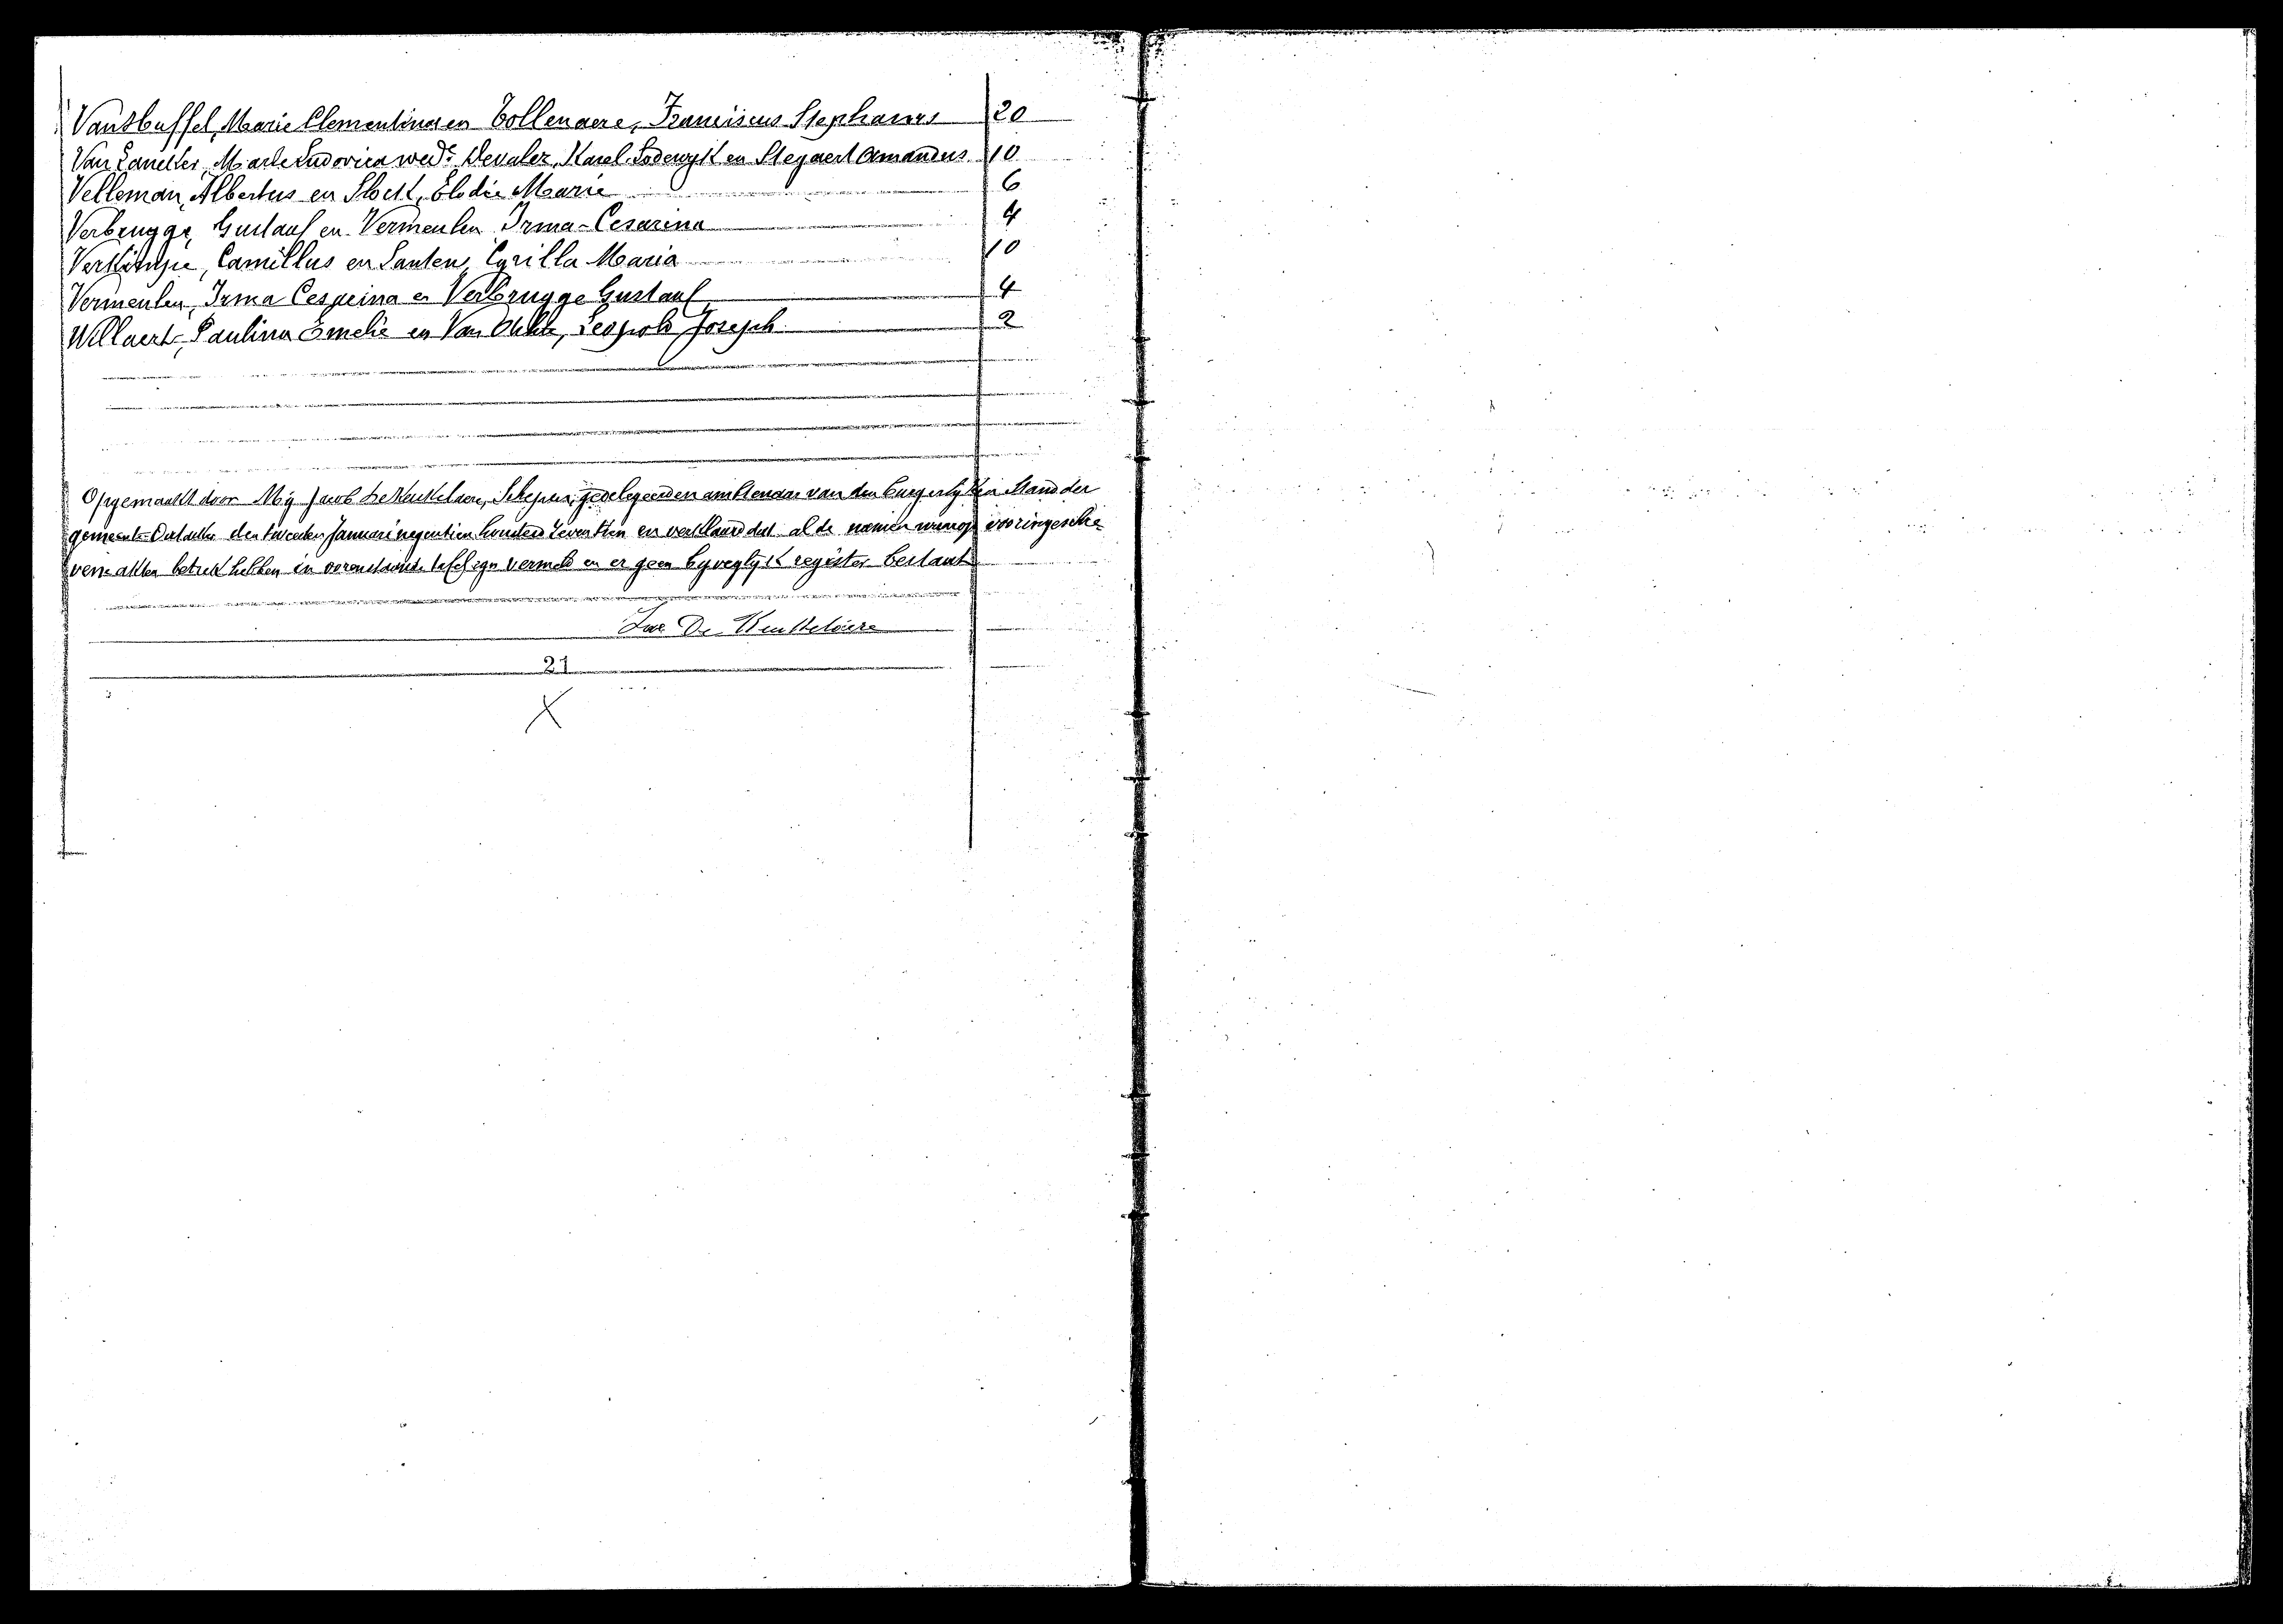 Marie Clementina en Tollenaere, Franciscus Stephanus 20
Marie Ludovica wed.e Karel Lodewyk en Steyaert Amandus 10
Velleman, Albertus en Elodie Marie 6
Verbrugge, Gustaaf en Vermeulen Irma-Cesarina 4
Camillus en Santens Cyrilla Maria 10
Vermeulen, Irma en Verbrugge Gustaaf 4
Willaert, Paulina Emelie en Van Leopold Joseph 2
Opgemaakt door My Jacob De Keukelaere, Schepen, gedelegeerden ambtenaar van den burgerlyken Stand der
gemeente Oostakker den tweeden Januari negentien honderd zeventien en verklaard dat al de namen waarop
akten betrek hebben in tafel zyn vermeld en er geen byvoeglyk register bestaat
Jac De Keukelaere
21